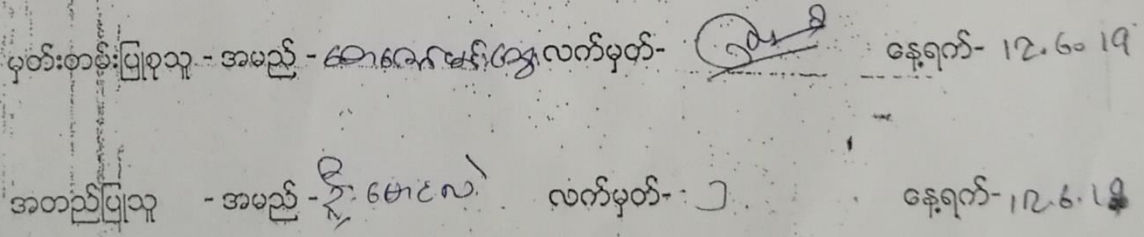 မှတ်းတမ်းပြုစုသူ - အမည် - စောကျော်မန်းထွေး လက်မှတ်- နေ့ရက်- 12.6.2019
အတည်ပြုသူ - အမည် - ဦးမောငလဲ လက်မှတ်- နေ့ရက်- 12.6.19